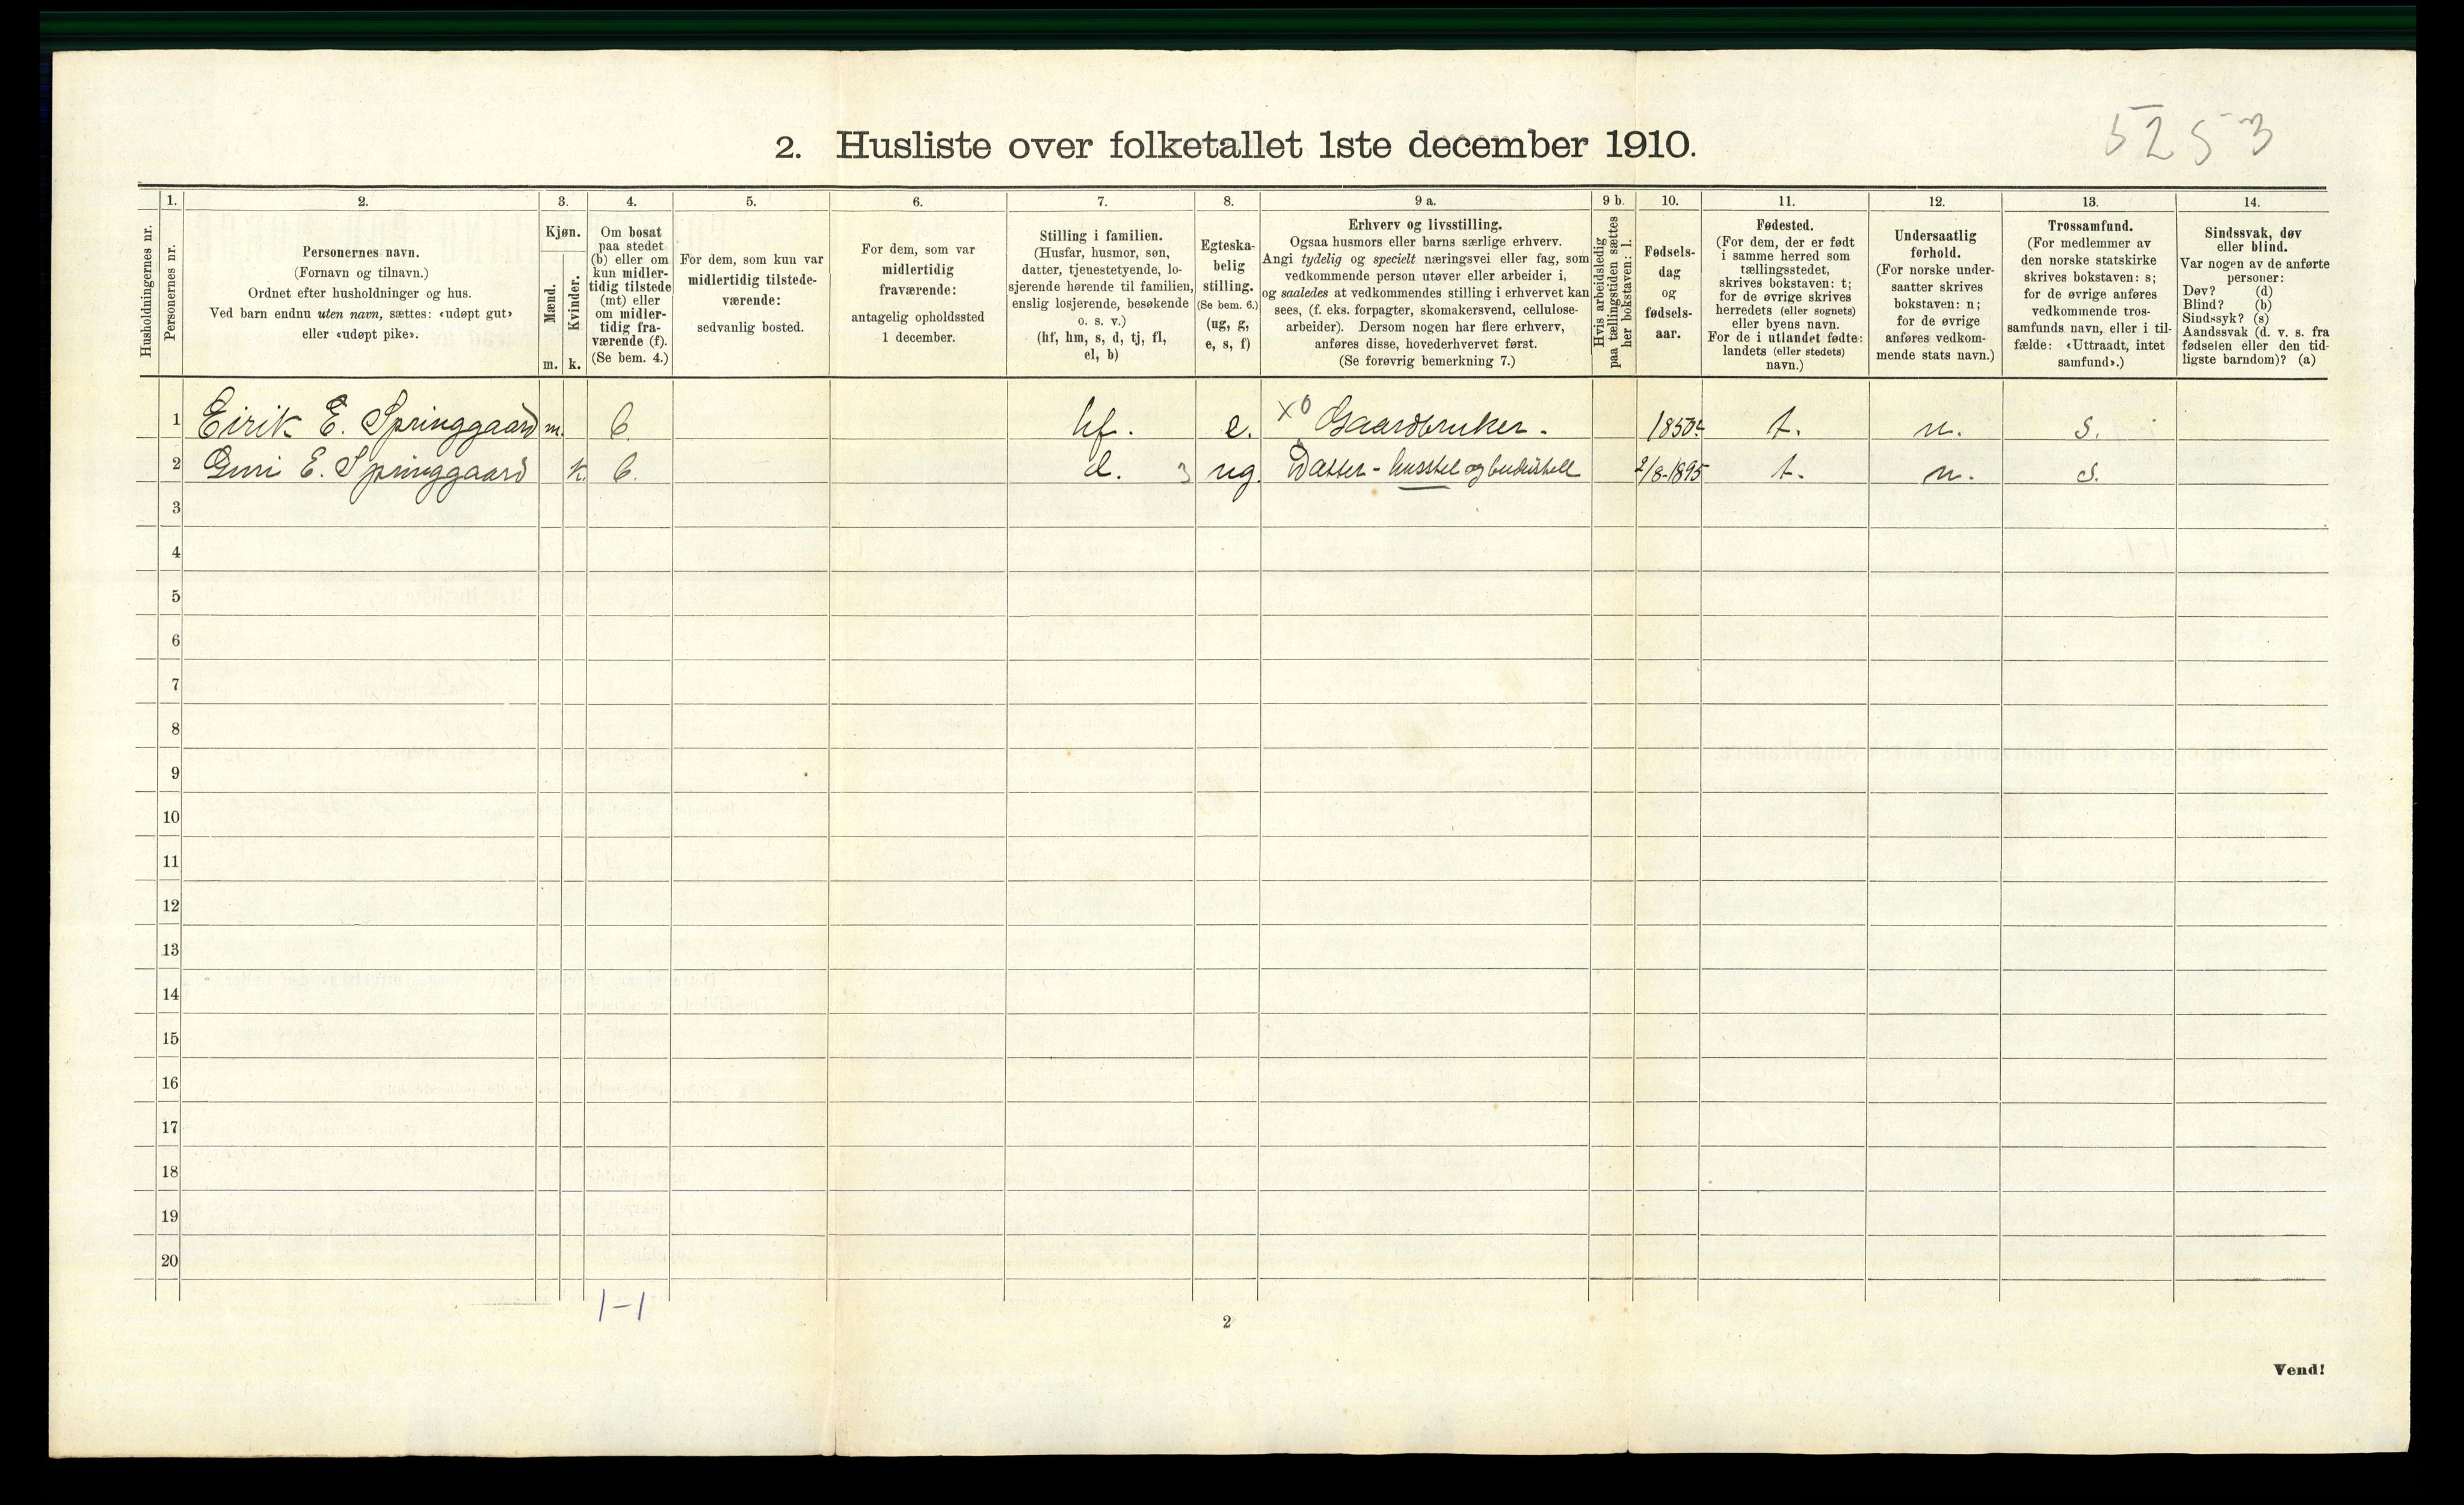 5253
2. Husliste over folketallet 1ste december 1910.
Husholdningernes nr.
1.
Personernes nr.
2.
Personernes navn.
(Fornavn og tilnavn.)
Ordnet efter husholdninger og hus.
Ved barn endnu uten navn, sættes: «udøpt gut»
eller «udøpt pike».
3.
Kjøn.
Mænd.
m.
Kvinder.
k.
4.
Om bosat
paa stedet
(b) eller om
kun midler-
tidig tilstede
(mt) eller
om midler-
tidig fra-
værende (f).
(Se bem. 4.)
5.
For dem, som kun var
midlertidig tilstede-
værende:
sedvanlig bosted.
6.
For dem, som var
midlertidig
fraværende:
antagelig opholdssted
1 december.
7.
Stilling i familien.
(Husfar, husmor, søn,
datter, tjenestetyende, lo-
sjerende hørende til familien,
enslig losjerende, besøkende
o. s. v.)
(hf, hm, s, d, tj, fl,
el, b)
8.
Egteska-
belig
stilling.
(Se bem. 6.)
(ug, g,
e, s, f)
9 a.
Erhverv og livsstilling.
Ogsaa husmors eller barns særlige erhverv.
Angi tydelig og specielt næringsvei eller fag, som
vedkommende person utøver eller arbeider i,
og saaledes at vedkommendes stilling i erhvervet kan
sees, (f. eks. forpagter, skomakersvend, cellulose-
arbeider). Dersom nogen har flere erhverv,
anføres disse, hovederhvervet først.
(Se forøvrig bemerkning 7.)
9 b.
Hvis arbeidsledig
paa tællingstiden sættes
her bokstaven: l.
10.
Fødsels-
dag
og
fødsels-
aar.
11.
Fødested.
(For dem, der er født
i samme herred som
tællingsstedet,
skrives bokstaven: t;
for de øvrige skrives
herredets (eller sognets)
eller byens navn.
For de i utlandet fødte:
landets (eller stedets)
navn.)
12.
Undersaatlig
forhold.
(For norske under-
saatter skrives
bokstaven: n;
for de øvrige
anføres vedkom-
mende stats navn.)
13.
Trossamfund.
(For medlemmer av
den norske statskirke
skrives bokstaven: s;
for de øvrige anføres
vedkommende tros-
samfunds navn, eller i til-
fælde: «Uttraadt, intet
samfund».)
14.
Sindssvak, døv
eller blind.
Var nogen av de anførte
personer:
Døv? (d)
Blind? (b)
Sindssyk? (s)
Aandssvak (d. v. s. fra
fødselen eller den tid-
ligste barndom)? (a)
1 Eirik E. Springgaard m. b. hf. e. x0 Gaardbruker. 1850 t. n. s.
2 Guri E. Springgaard k. b. d. 3 ug. Datter - husstel og budeistell 2/8-1895 t. n. s.
3
4
5
6
7
8
9
10
11
12
13
14
15
16
17
18
19
20
1-1
2
Vend!